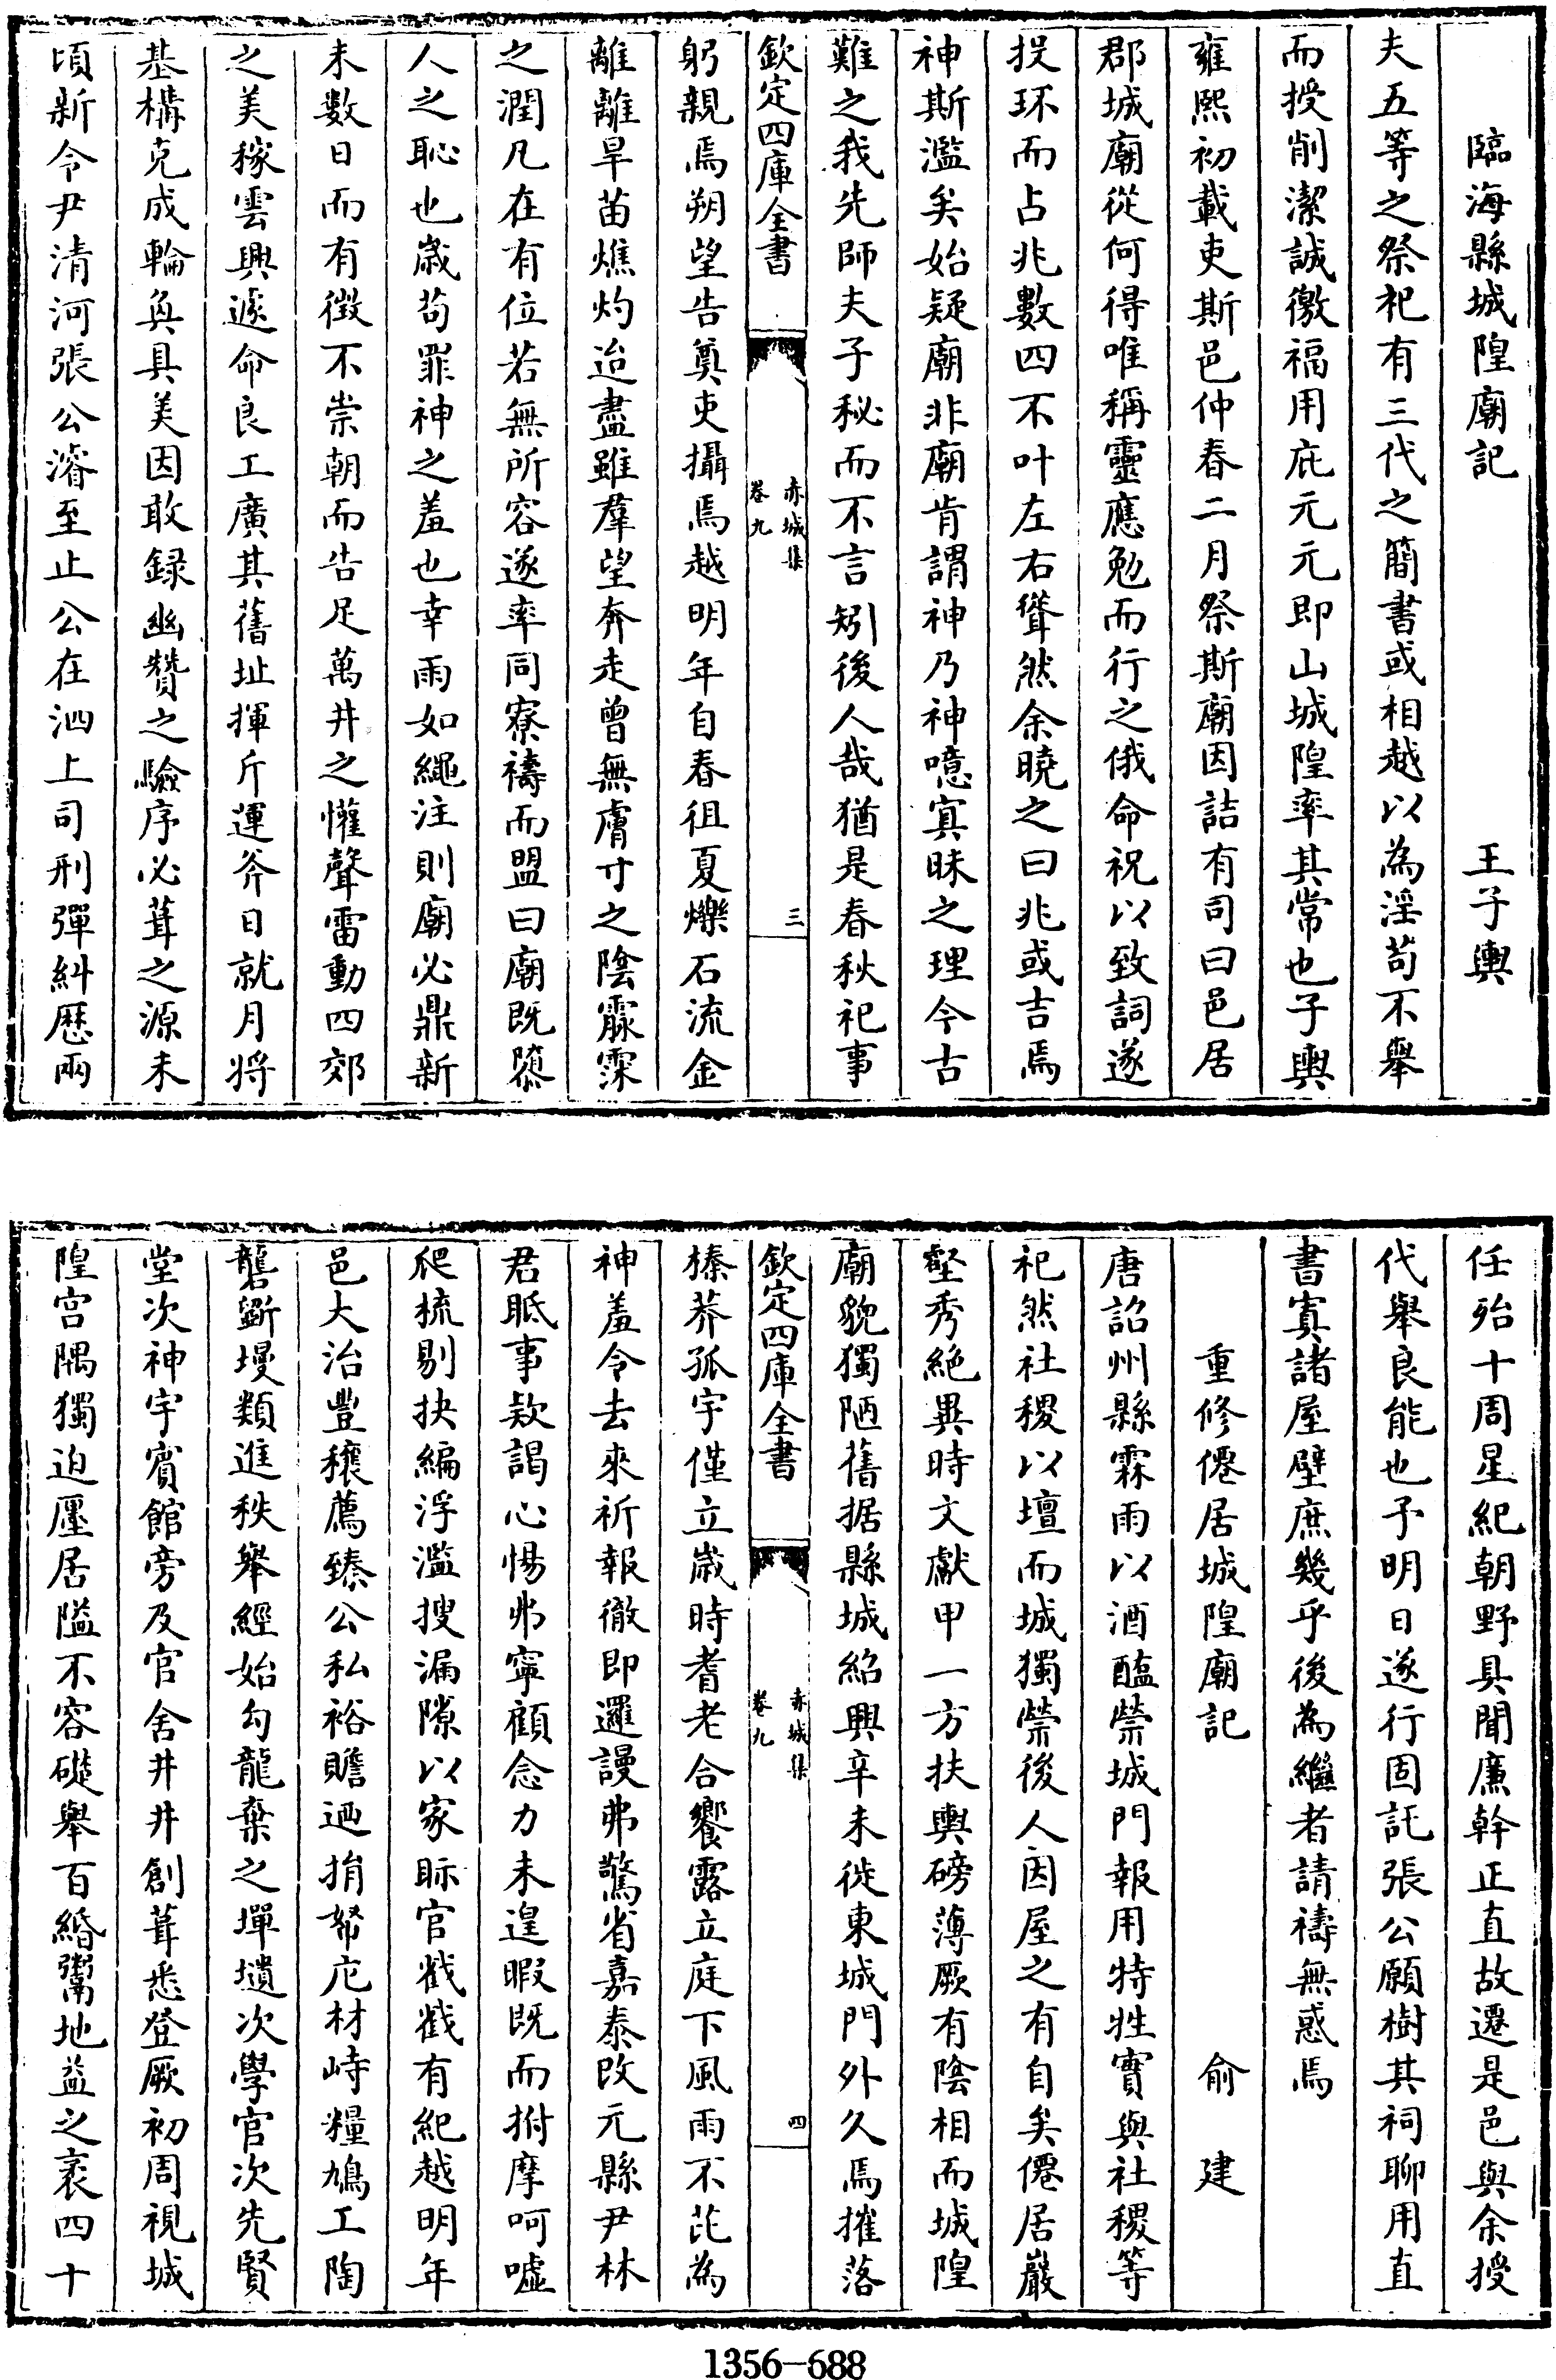 臨海縣城隍廟記　王子輿
夫五等之祭祀有三代之簡書或相越以為淫苟不舉
而授削潔誠徼福用庇元元即山城隍率其常也子輿
雍熙初載吏斯邑仲春二月祭斯廟因詰有司曰邑居
郡城廟從何得唯稱靈應勉而行之俄命祝以致詞遂
投环而占兆數四不叶左右聳然余曉之曰兆或吉焉
神斯濫矣始疑廟非廟肯謂神乃神噫寘昧之理今古
難之我先師夫子秘而不言矧後人哉猶是春秋祀事
欽定四庫全書　赤城集卷九　三
躬親焉朔望告奠吏攝焉越明年自春徂夏爍石流金
離離旱苗燋灼迨盡雖羣望奔走曾無膚寸之陰霢霂
之潤凡在有位若無所容遂率同寮禱而盟曰廟既隳
人之恥也歲苟罪神之羞也幸雨如繩注則廟必鼎新
未數日而有徵不崇朝而告足萬井之懽聲雷動四郊
之美稼雲興遂命良工廣其舊址揮斤運斧日就月將
基構克成輪奐具美因敢録幽贊之驗序必葺之源未
頃新令尹清河張公濬至止公在泗上司刑彈糾歷兩
任殆十周星紀朝野具聞廉幹正直故遷是邑與余授
代舉良能也予明日遂行固託張公願樹其祠聊用直
書寘諸屋壁庶幾乎後為繼者請禱無惑焉
重修僊居城隍廟記　俞建
唐詔州縣霖雨以酒醢禜城門報用特牲實與社稷等
祀然社稷以壇而城獨禜後人因屋之有自矣僊居巖
壑秀絶異時文獻甲一方扶輿磅薄厥有陰相而城隍
廟貌獨陋舊据縣城紹興辛未徙東城門外久焉摧落
欽定四庫全書　赤城集卷九　四
榛莽孤宇僅立歲時耆老合饗露立庭下風雨不芘為
神羞令去來祈報徹即邏謾弗驚省嘉泰改元縣尹林
君眡事款謁心惕弗寧顧念力未遑暇既而拊摩呵噓
爬梳剔抉編浮濫搜漏隙以家眎官戢戢有紀越明年
邑大治豐穰薦臻公私裕贍迺捐帑庀材峙糧鳩工陶
礱斵墁類進秩舉經始勾龍棄之墠壝次學官次先賢
堂次神宇賓館旁及官舍井井創葺悉登厥初周視城
隍宫隅獨迫廛居隘不容礎舉百緡鬻地益之袤四十
1356-688